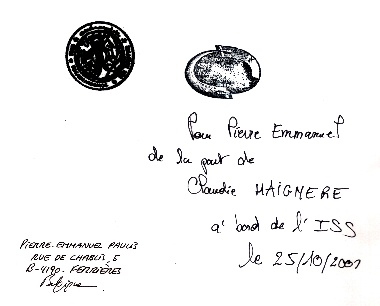 Pour Pierre Emmanuel
de la part de
Claudie HAIGNERE
a' bord de l'ISS
le 25/10/2001
PIERRE-EMMANUEL PAULIS
RUE DE CHABLIS, 5
B-4190- FERRIÈRES
Belgique